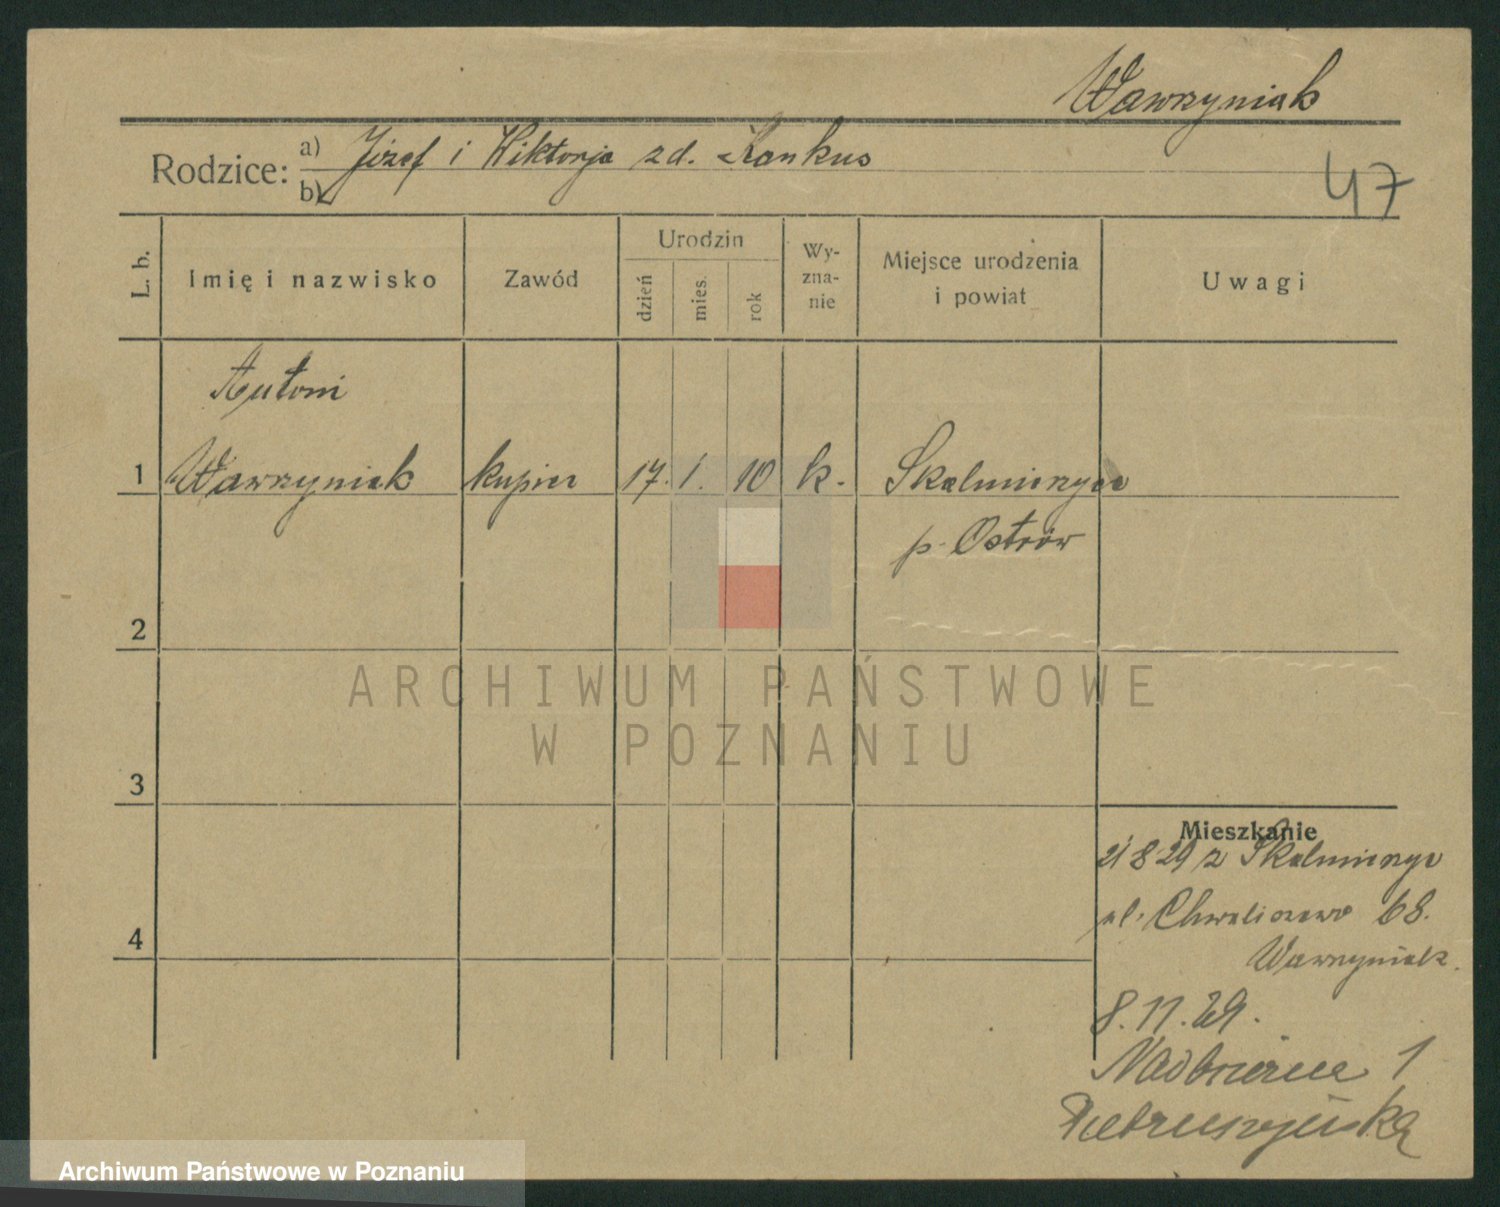 Wawrzyniak
Rodzice: a) Józef i Wiktorja zd. Kankus
b)
47
L. b.
Imię i nazwisko
Zawód
Urodzin
dzień
mies.
rok
Wy-
zna-
nie
Miejsce urodzenia
i powiat
Uwagi
Antoni
1 Wawrzyniak kupiec 17. 1. 10 k. Skalmierzyce
p. Ostrów
2
ARCHIWUM PAŃSTWOWE
W POZNANIU
3
Mieszkanie
21 8 29 z Skalmierzyc
ul. Chwaliszewo 68.
4
Wawrzyniak.
8.11.29.
Nadbrzeżna 1
Pietruszyńska
Archiwum Państwowe w Poznaniu